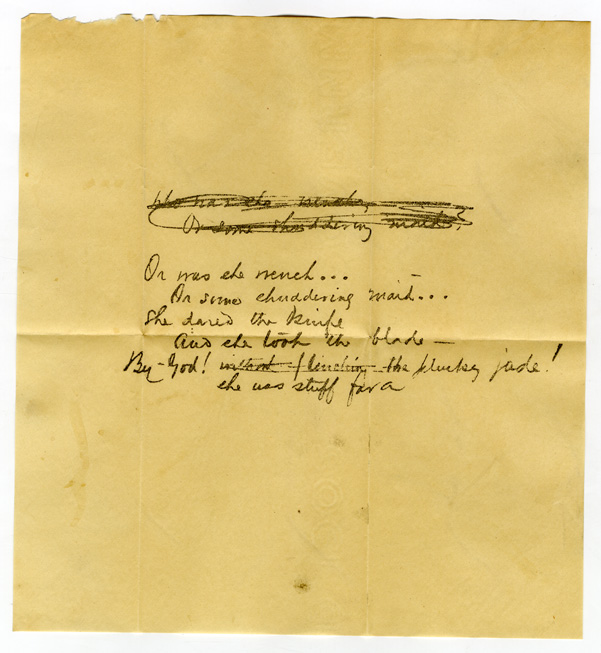 Or some shuddering maid?
Or was she wench...
Or some shuddering maid...
She dared the knife
And she took the blade —
By - God! without flinching the plucky jade!
she was stuff for a